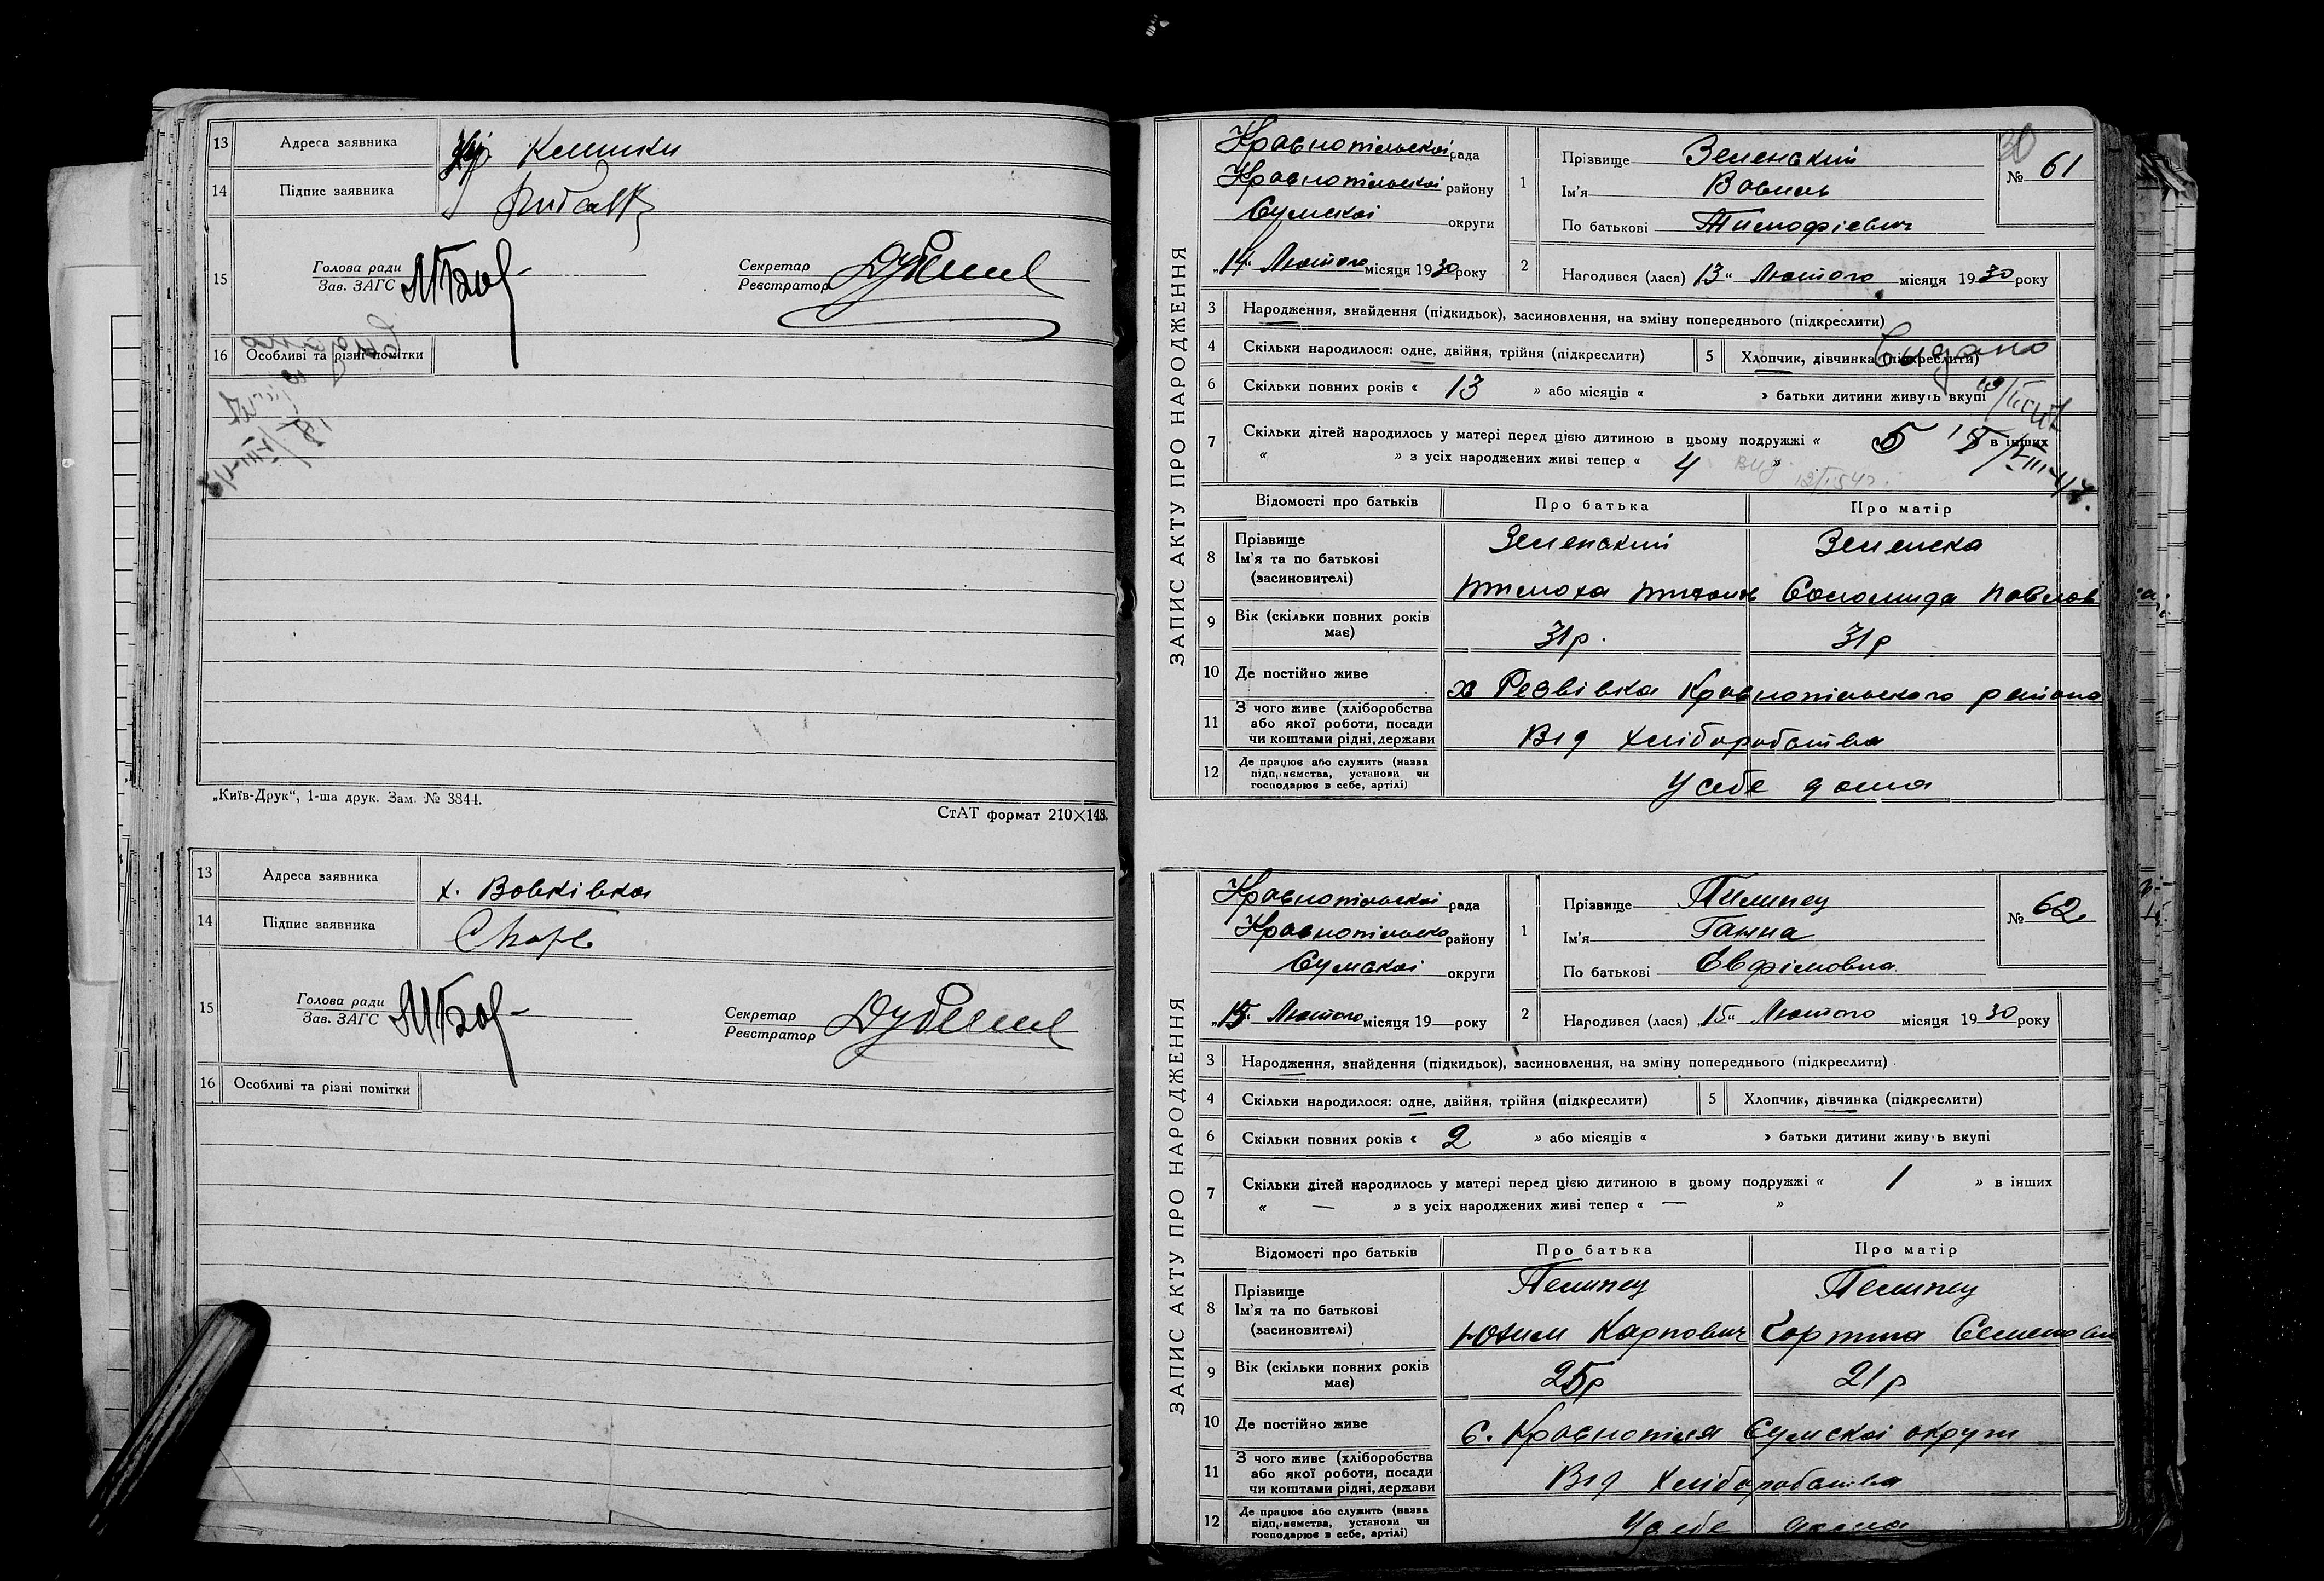 13 Адреса заявника
14 Підпис заявника
15 Голова ради
Зав. ЗАГС
Секретар
Реєстратор
16 Особливі та різні помітки
„Київ-Друк“, 1-ша друк. Зам. № 3844.
СтАТ формат 210×148.
13 Адреса заявника х. Вовківка
14 Підпис заявника
15 Голова ради
Зав. ЗАГС
Секретар
Реєстратор
16 Особливі та різні помітки
ЗАПИС АКТУ ПРО НАРОДЖЕННЯ
30
№ 61
Краснопільскої рада
Краснопільскої району
Сумскої округи
„14“ Лютого місяця 1930 року
1 Прізвище Зеленський
Ім'я Василь
По батькові Тимофієвич
2 Народився (лася) 13“ Лютого місяця 1930 року
3 Народження, знайдення (підкидьок), засиновлення, на зміну попереднього (підкреслити)
4 Скільки народилося: одне, двійня, трійня (підкреслити) 5 Хлопчик, дівчинка (підкреслити)
6 Скільки повних років « 13 » або місяців « » батьки дитини живуть вкупі
7 Скільки дітей народилось у матері перед цією дитиною в цьому подружжі « 5 в інших
« » з усіх народжених живі тепер « 4
Відомості про батьків Про батька Про матір
8 Прізвище Зеленский Зеленска
Ім'я та по батькові
(засиновителі) Тимоха Соломида Павлов
9 Вік (скільки повних років
має) 31р. 31р
10 Де постійно живе х Резвівка Краснопільского района
11 З чого живе (хліборобства
або якої роботи, посади
чи коштами рідні, держави Від хліборобства
12 Де працює або служить (назва
підприємства, установи чи
господарює в себе, артілі) У себе дома
ЗАПИС АКТУ ПРО НАРОДЖЕННЯ
№ 62
Краснопільскої рада
Краснопільско району
Сумскої округи
„15“ Лютого місяця 19 — року
1 Прізвище Пилипец
Ім'я Ганна
По батькові Евфімовна
2 Народився (лася) 15“ Лютого місяця 1930 року
3 Народження, знайдення (підкидьок), засиновлення, на зміну попереднього (підкреслити)
4 Скільки народилося: одне, двійня, трійня (підкреслити) 5 Хлопчик, дівчинка (підкреслити)
6 Скільки повних років « 2 » або місяців « » батьки дитини живуть вкупі
7 Скільки дітей народилось у матері перед цією дитиною в цьому подружжі « 1 » в інших
« — » з усіх народжених живі тепер « — »
Відомості про батьків Про батька Про матір
8 Прізвище Пелипец Пелипец
Ім'я та по батькові
(засиновителі) Юхим Карпович Горпина Семеновн
9 Вік (скільки повних років
має) 25р 21р
10 Де постійно живе с. Краснопілля Сумскої округи
11 З чого живе (хліборобства
або якої роботи, посади
чи коштами рідні, держави Від хліборобства
12 Де працює або служить (назва
підприємства, установи чи
господарює в себе, артілі) У себе дома